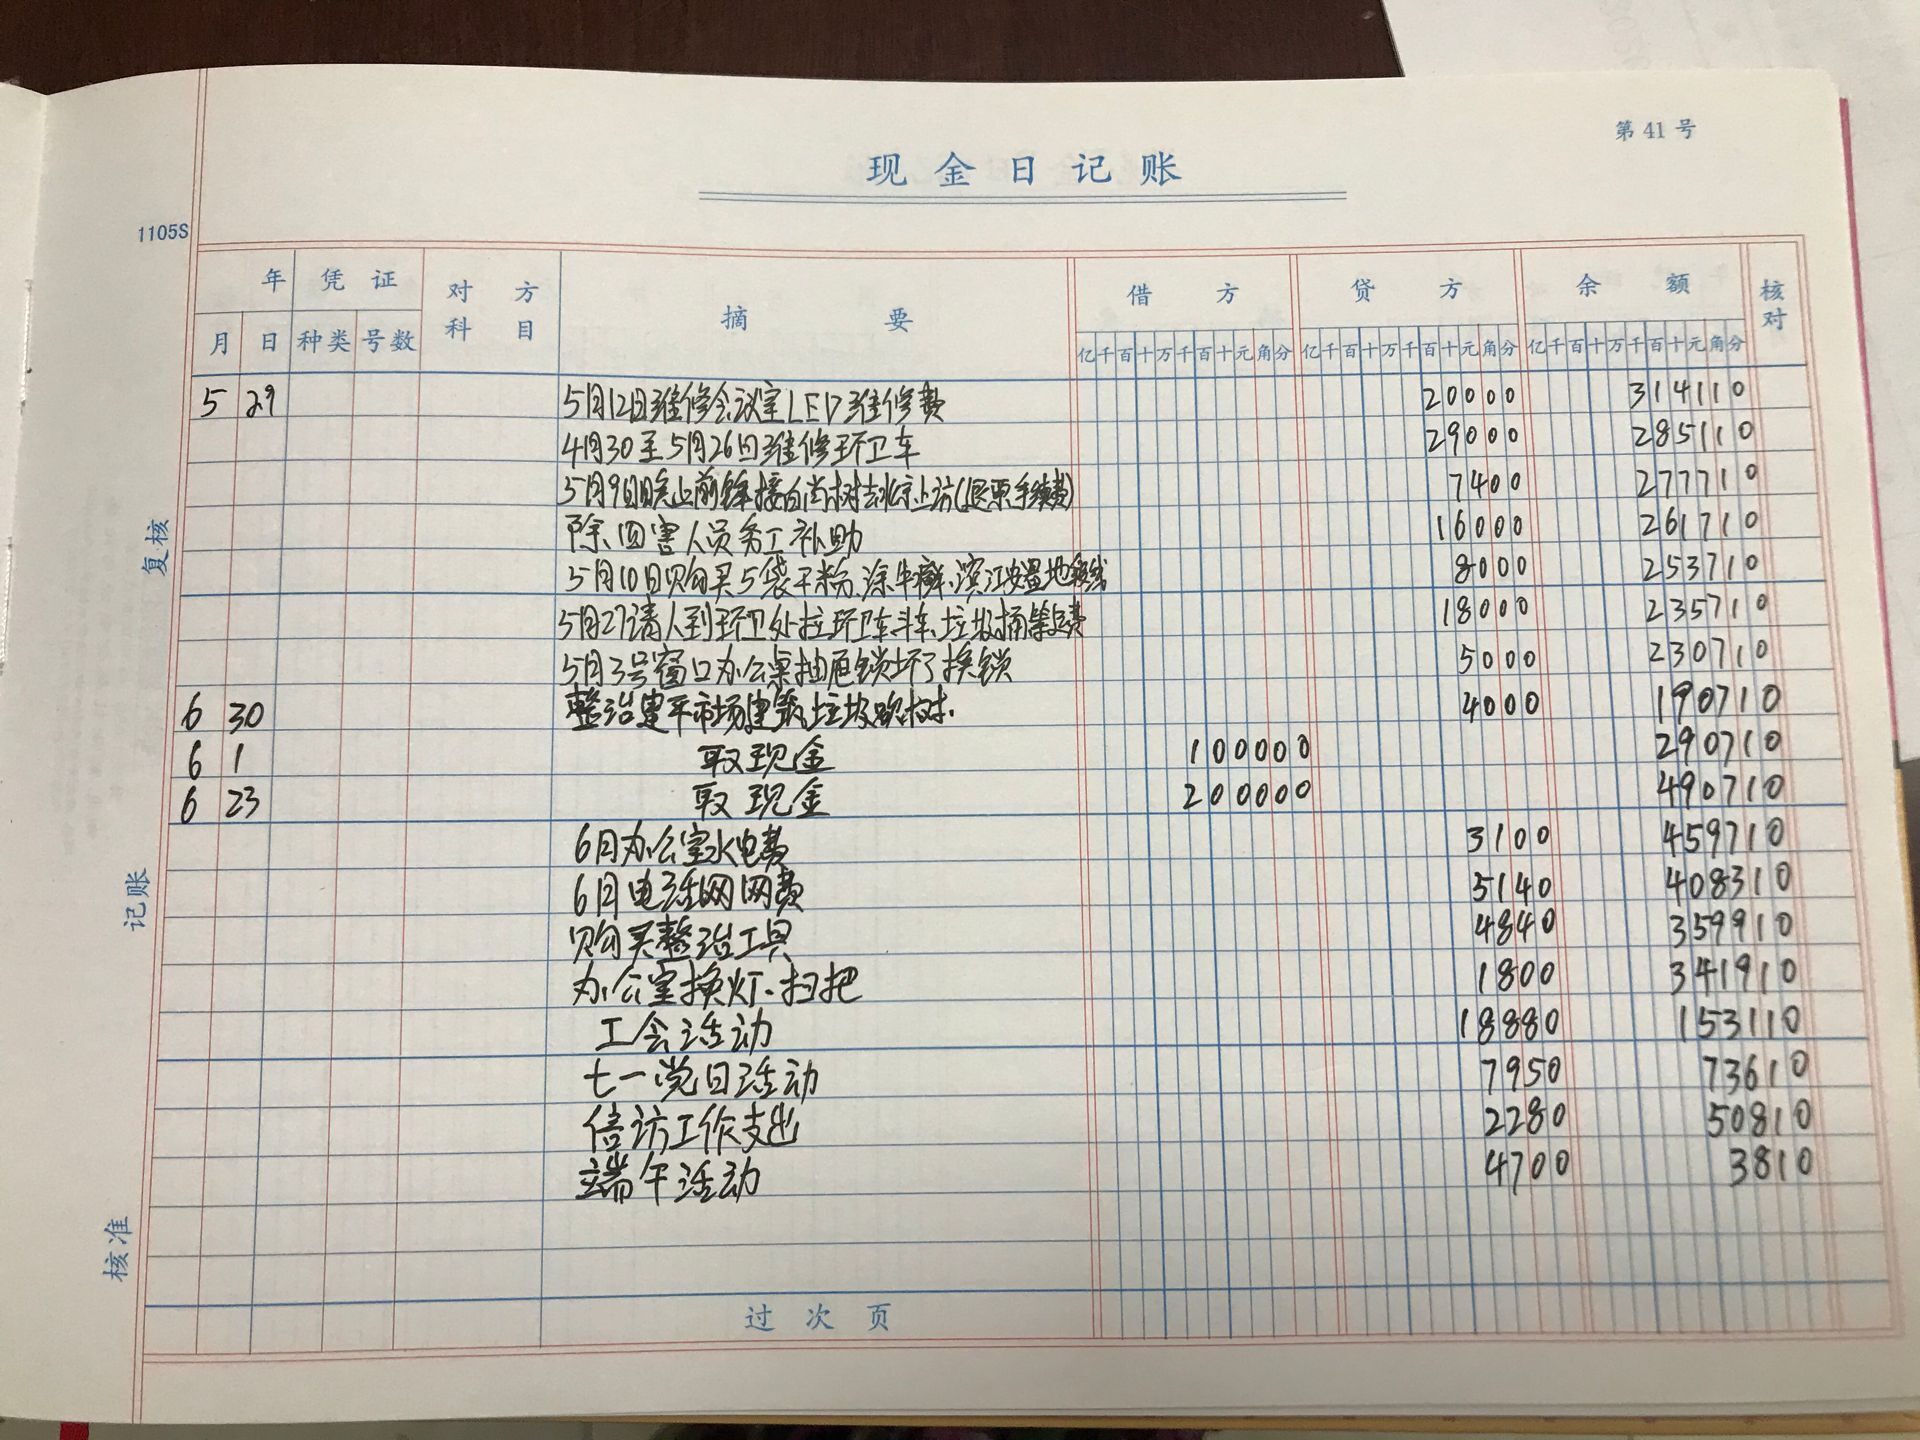 第 41 号
现金日记账
1105S
年 凭证 对方科目 摘要 借方 贷方 余额 核对
月 日 种类 号数 亿千百十万千百十元角分 亿千百十万千百十元角分 亿千百十万千百十元角分
5 29 5月12日维修会议室LED维修费 20000 314110
4月30至5月26日维修环卫车 29000 285110
5月9日晚上前锋接白尚树去北京上访(退票手续费) 7400 277710
除四害人员务工补助 16000 261710
5月10日购买5袋干粉、涂牛癣、滨江安置地 8000 253710
5月27请人到环卫处拉环卫车斗车、垃圾桶等 18000 235710
5月3号窗口办公桌抽屉锁坏了换锁 5000 230710
6 30 整治建平市场建筑垃圾 树. 4000 190710
6 1 取现金 100000 290710
6 23 取现金 200000 490710
6月办公室水电费 3100 459710
6月电话网网费 5140 408310
购买整治工具 4840 359910
办公室换灯、扫把 1800 341910
工会活动 18880 153110
七一党日活动 7950 73610
信访工作支出 2280 50810
端午活动 4700 3810
过次页
复核
记账
核准